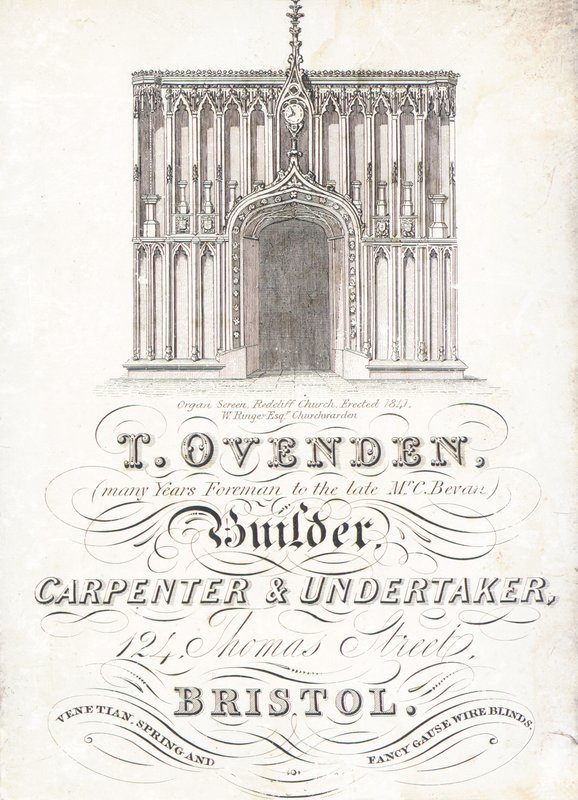 Organ Screen, Redcliff Church, Erected 1841.
W. Ringer Esqr. Churchwarden
T. OVENDEN,
(many Years Foreman to the late Mr. C. Bevan)
Builder,
CARPENTER & UNDERTAKER,
124, Thomas Street,
BRISTOL.
VENETIAN, SPRING AND
FANCY GAUSE WIRE BLINDS.